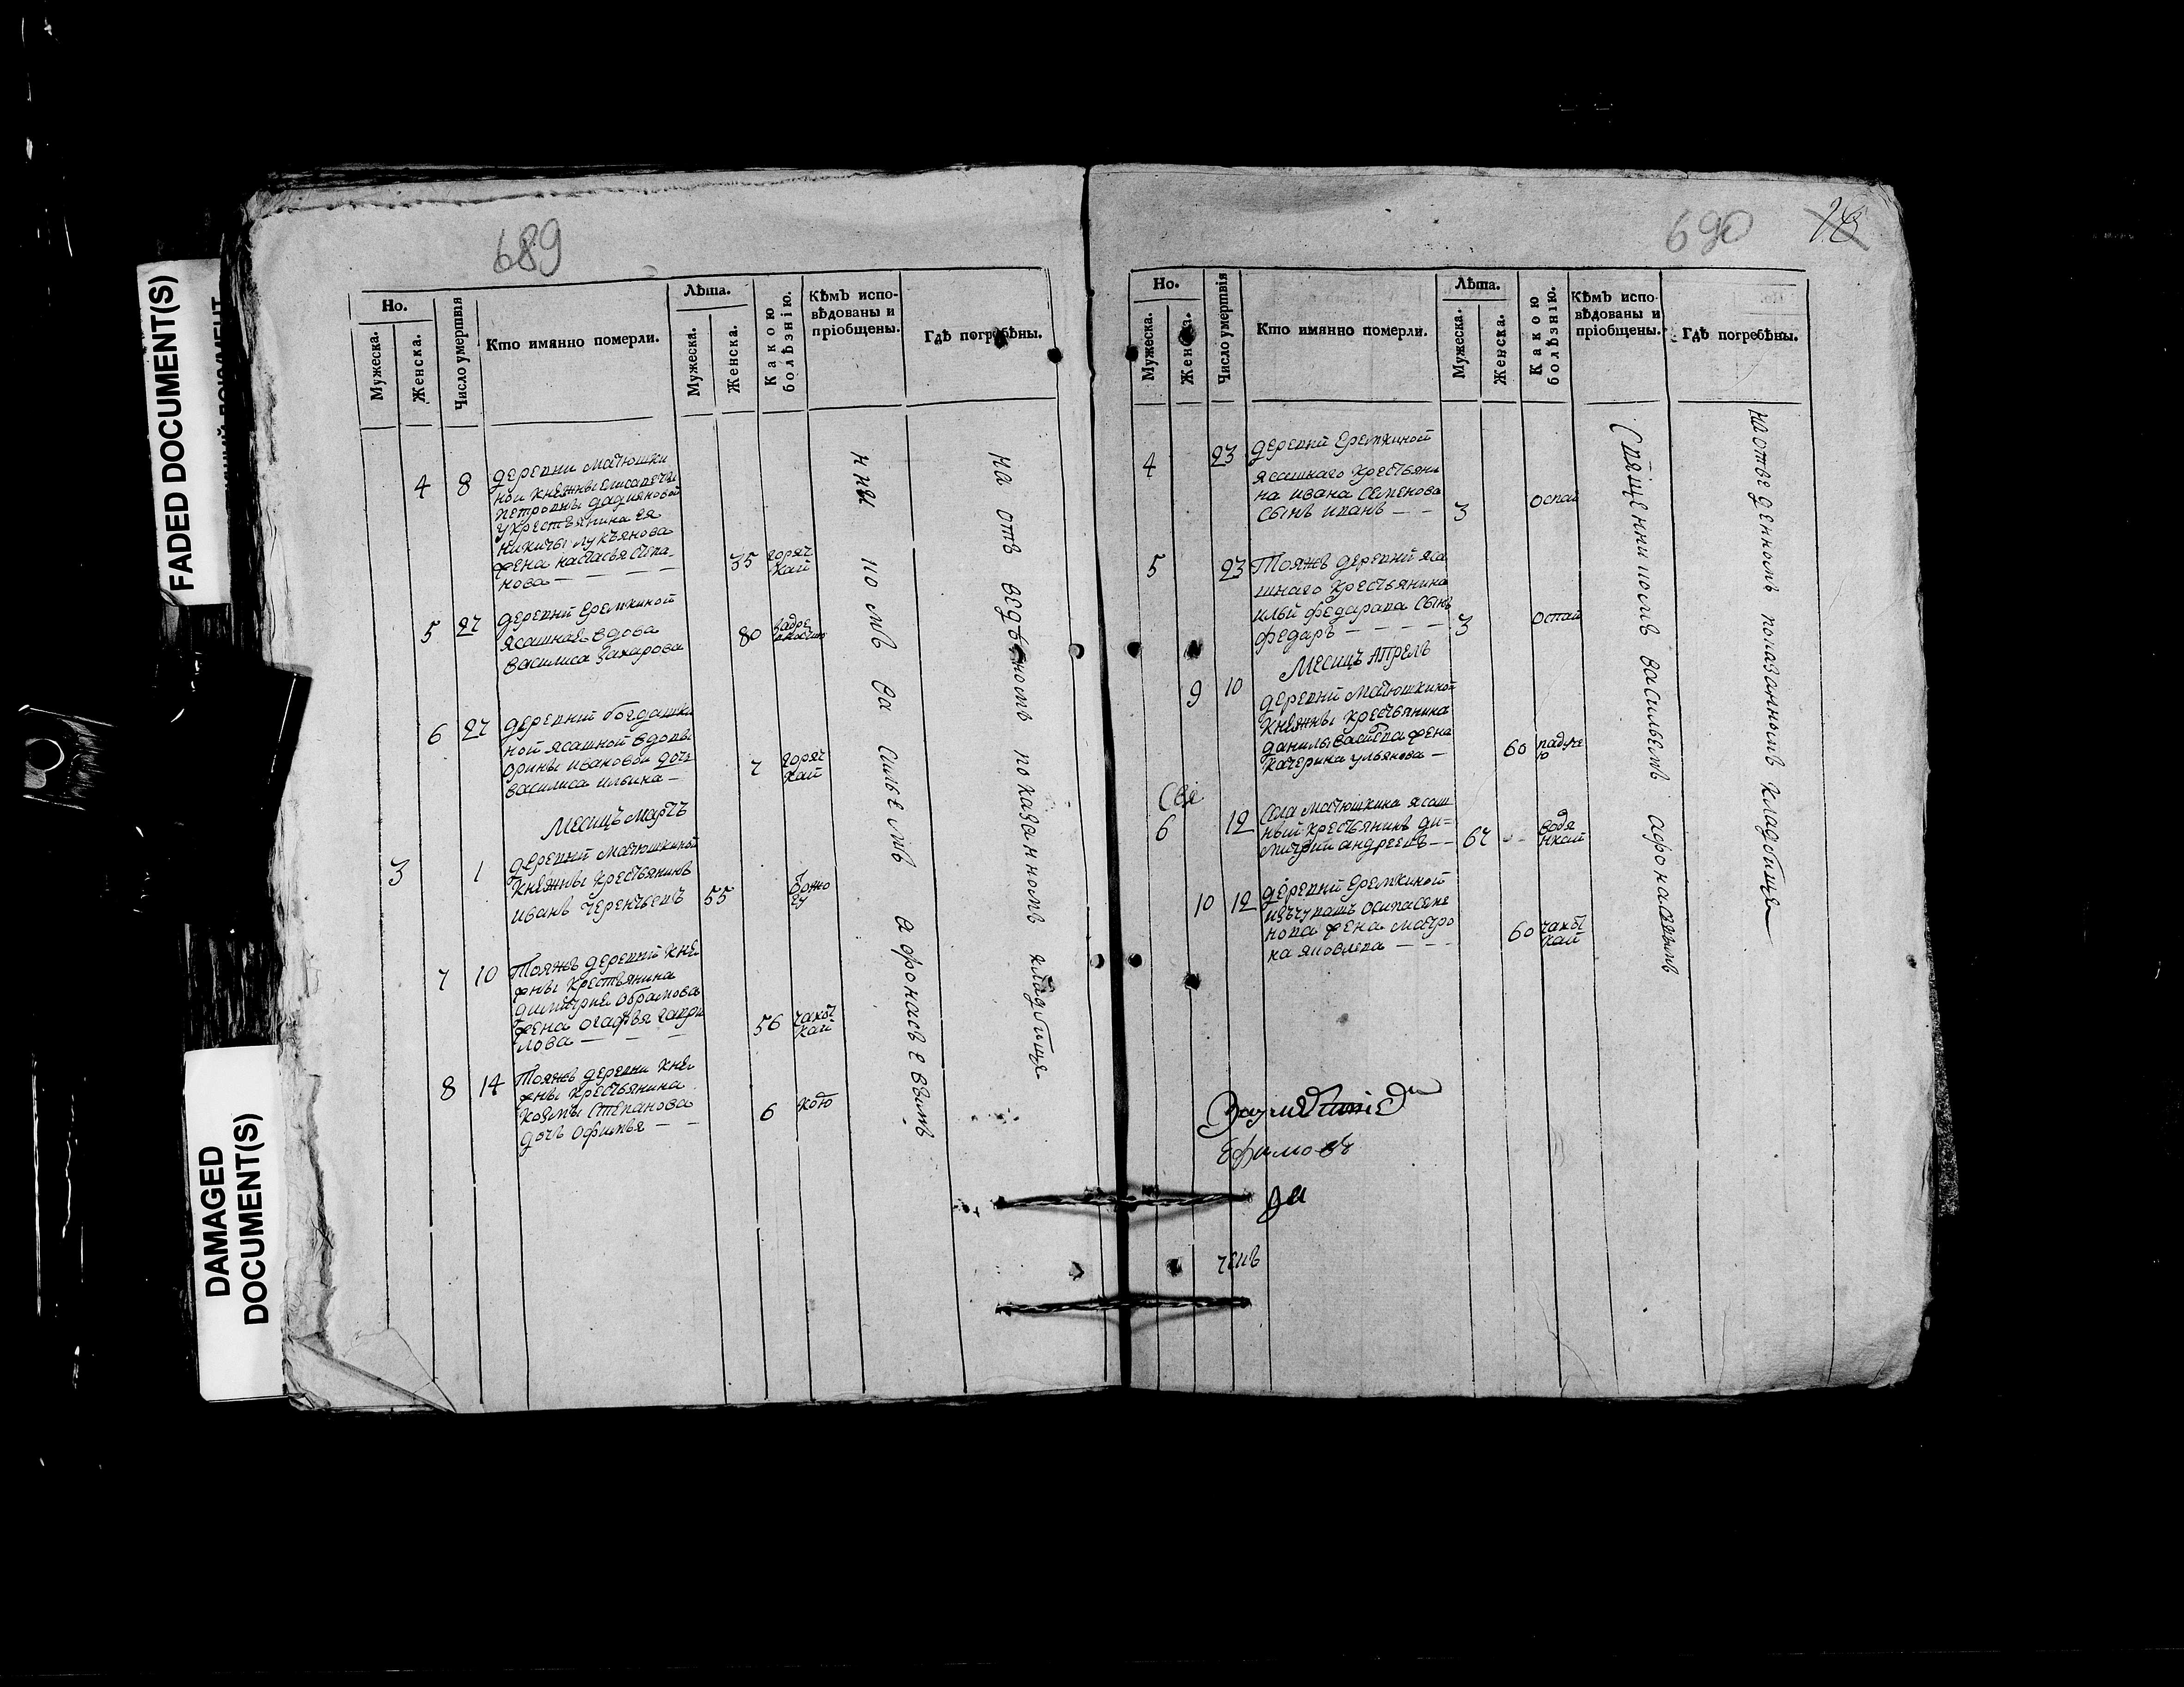 FADED DOCUMENT(S)
DAMAGED
DOCUMENT(S)
689
Но.
Мужеска.
Женска.
Число умертвія
Кто имянно померли.
Лѣта.
Мужеска.
Женска.
Какою
болѣзнію.
Кѣмъ испо-
вѣдованы и
пріобщены.
Гдѣ погребѣны.
4 8 деревни матюшки
ной княжны елисаветы
петровны дадияновой
укрестьянина ея
никиты лукъянова
жена настасья степа-
нова — 35 горяч
кай
5 27 деревни Еремкиной
ясашная вдова
василиса захарова 80
6 27 деревни богдашки
ной ясашной вдовы
орины ивановой дочь
василиса ильина — 7 горяч
кай
Месицъ мартъ
3 1 деревни матюшкиной
княжны крестьянинъ
иванъ терентьевъ 55
7 10 Тояжъ деревни кня
жны крестьянина
димитрия обрамова
жена огафья гаври
лова — 56 чахот
кай
8 14 Тояжъ деревни кня
жны крестьянина
козмы степанова
дочь офимья — 6
васильемъ афонасьевымъ
на отведеномъ показанномъ кладбище
690
18
Но.
Мужеска.
Женска.
Число умертвія
Кто имянно померли.
Лѣта.
Мужеска.
Женска.
Какою
болѣзнію.
Кѣмъ испо-
вѣдованы и
пріобщены.
Гдѣ погребѣны.
4 23 деревни Еремкиной
ясашнаго крестьяни
на ивана семенова
сынъ иванъ — 3 оспай
5 23 Тояжъ деревни яса
шнаго крестьянина
ильи федарава сынъ
федаръ — 3 оспай
Месицъ Апрель
9 10 деревни матюшкиной
княжны крестьянина
данилы жена
катерина ульянова — 60
6 12 Села матюшкина ясаш
ный крестьянинъ ди-
митрий андреевъ — 67 водя
нкай
10 12 деревни Еремкиной
жена матро
на яковлева — 60 чахот
кай
Священникомъ васильемъ афонасьевымъ
на отведенномъ показанномъ кладбище
Ефимовъ